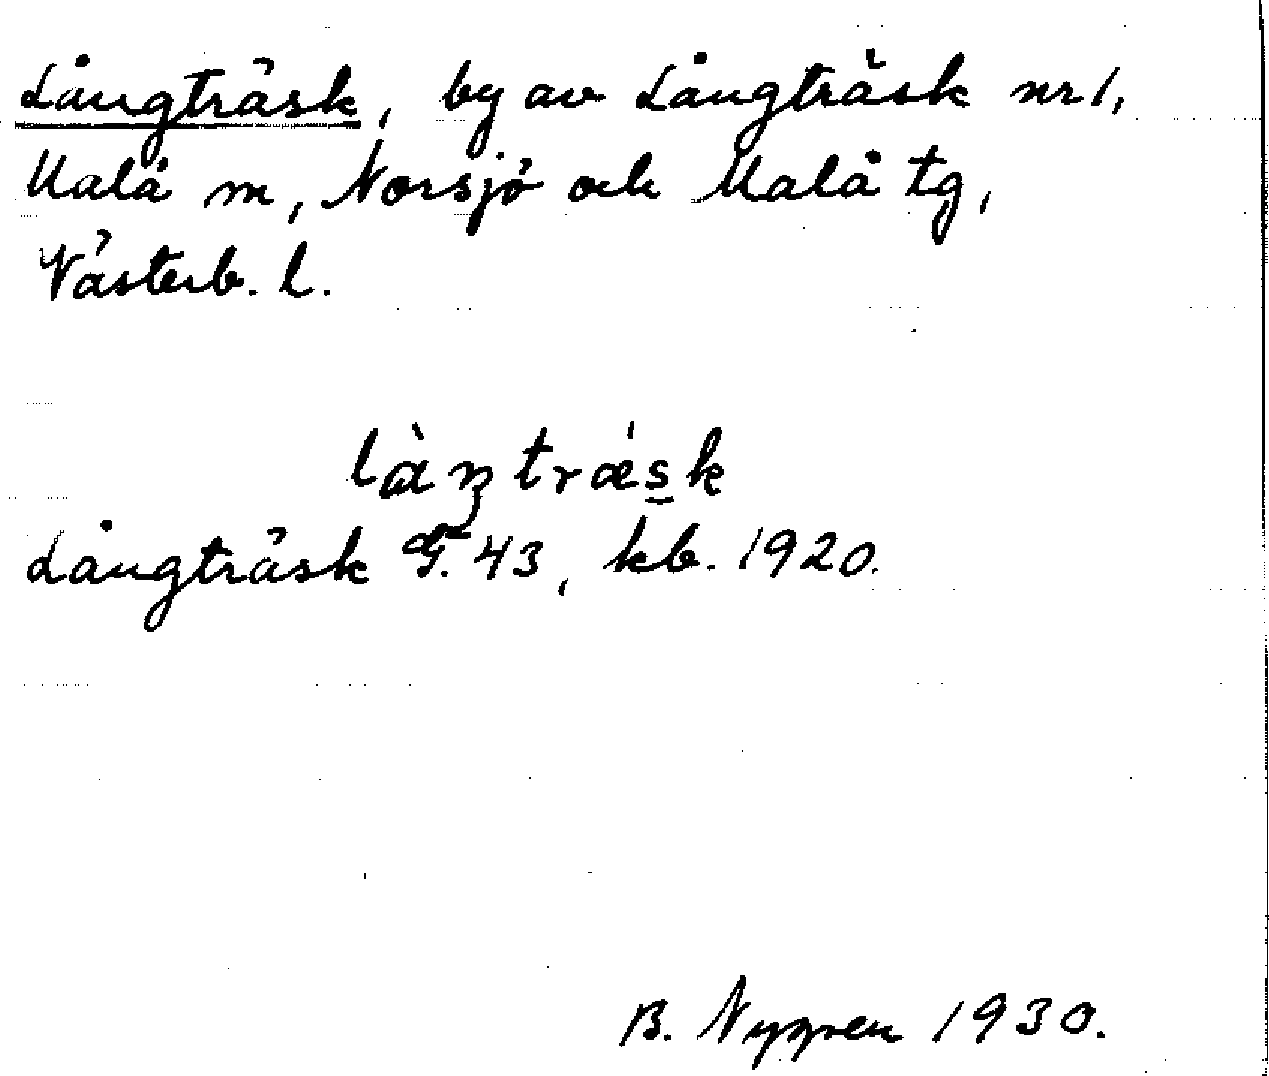 Långträsk, by av Långträsk nr 1,
Malå m, Norsjö och Malå tg,
Västerb. l.
làŋtrǽsk
Långträsk G. 43, kb. 1920.
B. Nygren 1930.